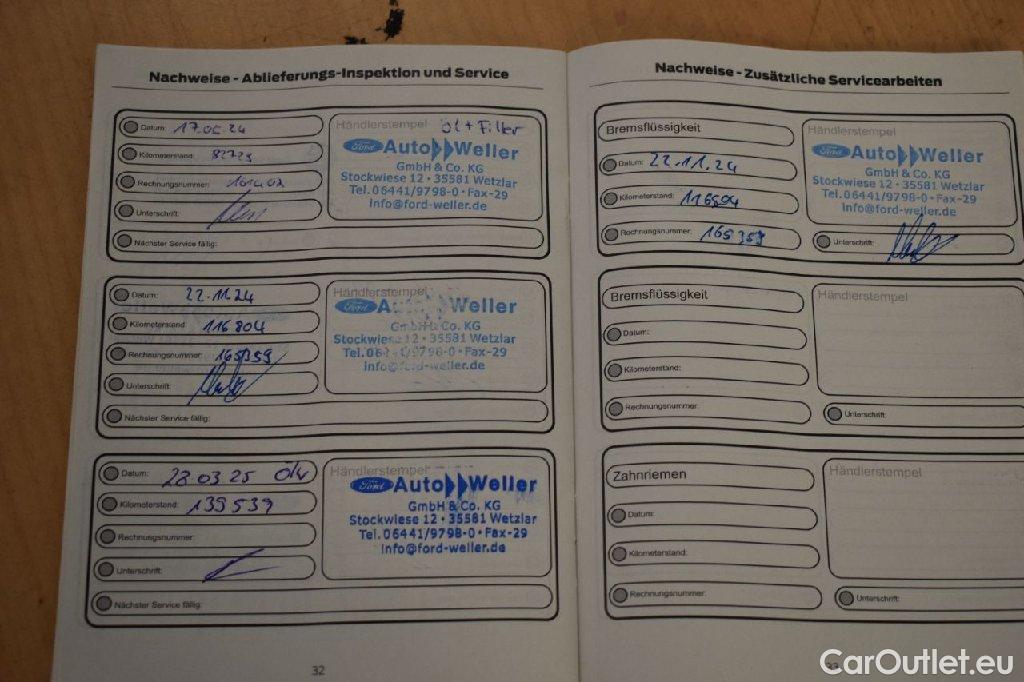 Nachweise - Ablieferungs-Inspektion und Service
Datum: 17.05.24
Kilometerstand: 82729
Rechnungsnummer:
Unterschrift:
Nächster Service fällig:
Händlerstempel Öl + Filter
Ford Auto Weller
GmbH & Co. KG
Stockwiese 12 • 35581 Wetzlar
Tel. 06441/9798-0 • Fax-29
info@ford-weller.de
Datum: 22.11.24
Kilometerstand: 116804
Rechnungsnummer: 165359
Unterschrift:
Nächster Service fällig:
Händlerstempel
Ford Weller
GmbH & Co. KG
Stockwiese 12 • 35581 Wetzlar
Tel. 06441/9798-0 • Fax-29
info@ford-weller.de
Datum: 28 03 25
Kilometerstand: 139539
Rechnungsnummer:
Unterschrift:
Nächster Service fällig:
Händlerstempel
Ford Auto Weller
GmbH & Co. KG
Stockwiese 12 • 35581 Wetzlar
Tel. 06441/9798-0 • Fax-29
info@ford-weller.de
32
Nachweise - Zusätzliche Servicearbeiten
Bremsflüssigkeit
Datum: 22.11.24
Kilometerstand: 116804
Rechnungsnummer: 165359
Händlerstempel
Ford Auto Weller
GmbH & Co. KG
Stockwiese 12 • 35581 Wetzlar
Tel. 06441/9798-0 • Fax-29
info@ford-weller.de
Unterschrift:
Bremsflüssigkeit
Datum:
Kilometerstand:
Rechnungsnummer:
Händlerstempel
Unterschrift:
Zahnriemen
Datum:
Kilometerstand:
Rechnungsnummer:
Händlerstempel
Unterschrift:
33
CarOutlet.eu